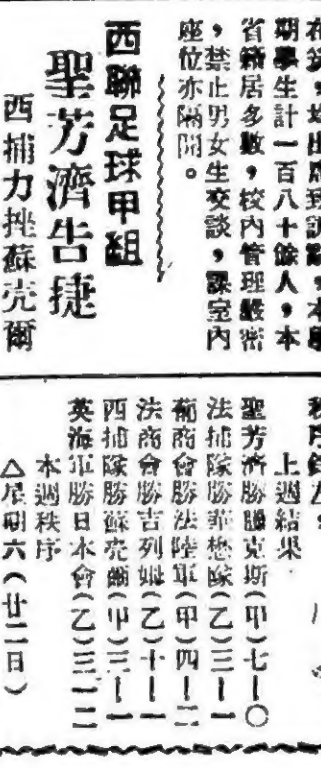 期學生計一百八十餘人，本
省籍居多數，校內管理嚴密
，禁止男女生交談，課室內
座位亦隔開。
西聯足球甲組
聖芳濟告捷
西捕力挫蘇壳爾
上週結果
聖芳濟勝臘克斯（甲）七—〇
法捕隊勝華懋隊（乙）三—一
葡商會勝法陸軍（甲）四—二
法商會勝吉列姆（乙）十—一
西捕隊勝蘇壳爾（甲）三—一
英海軍勝日本會（乙）三—二
本週秩序
△星期六（廿二日）